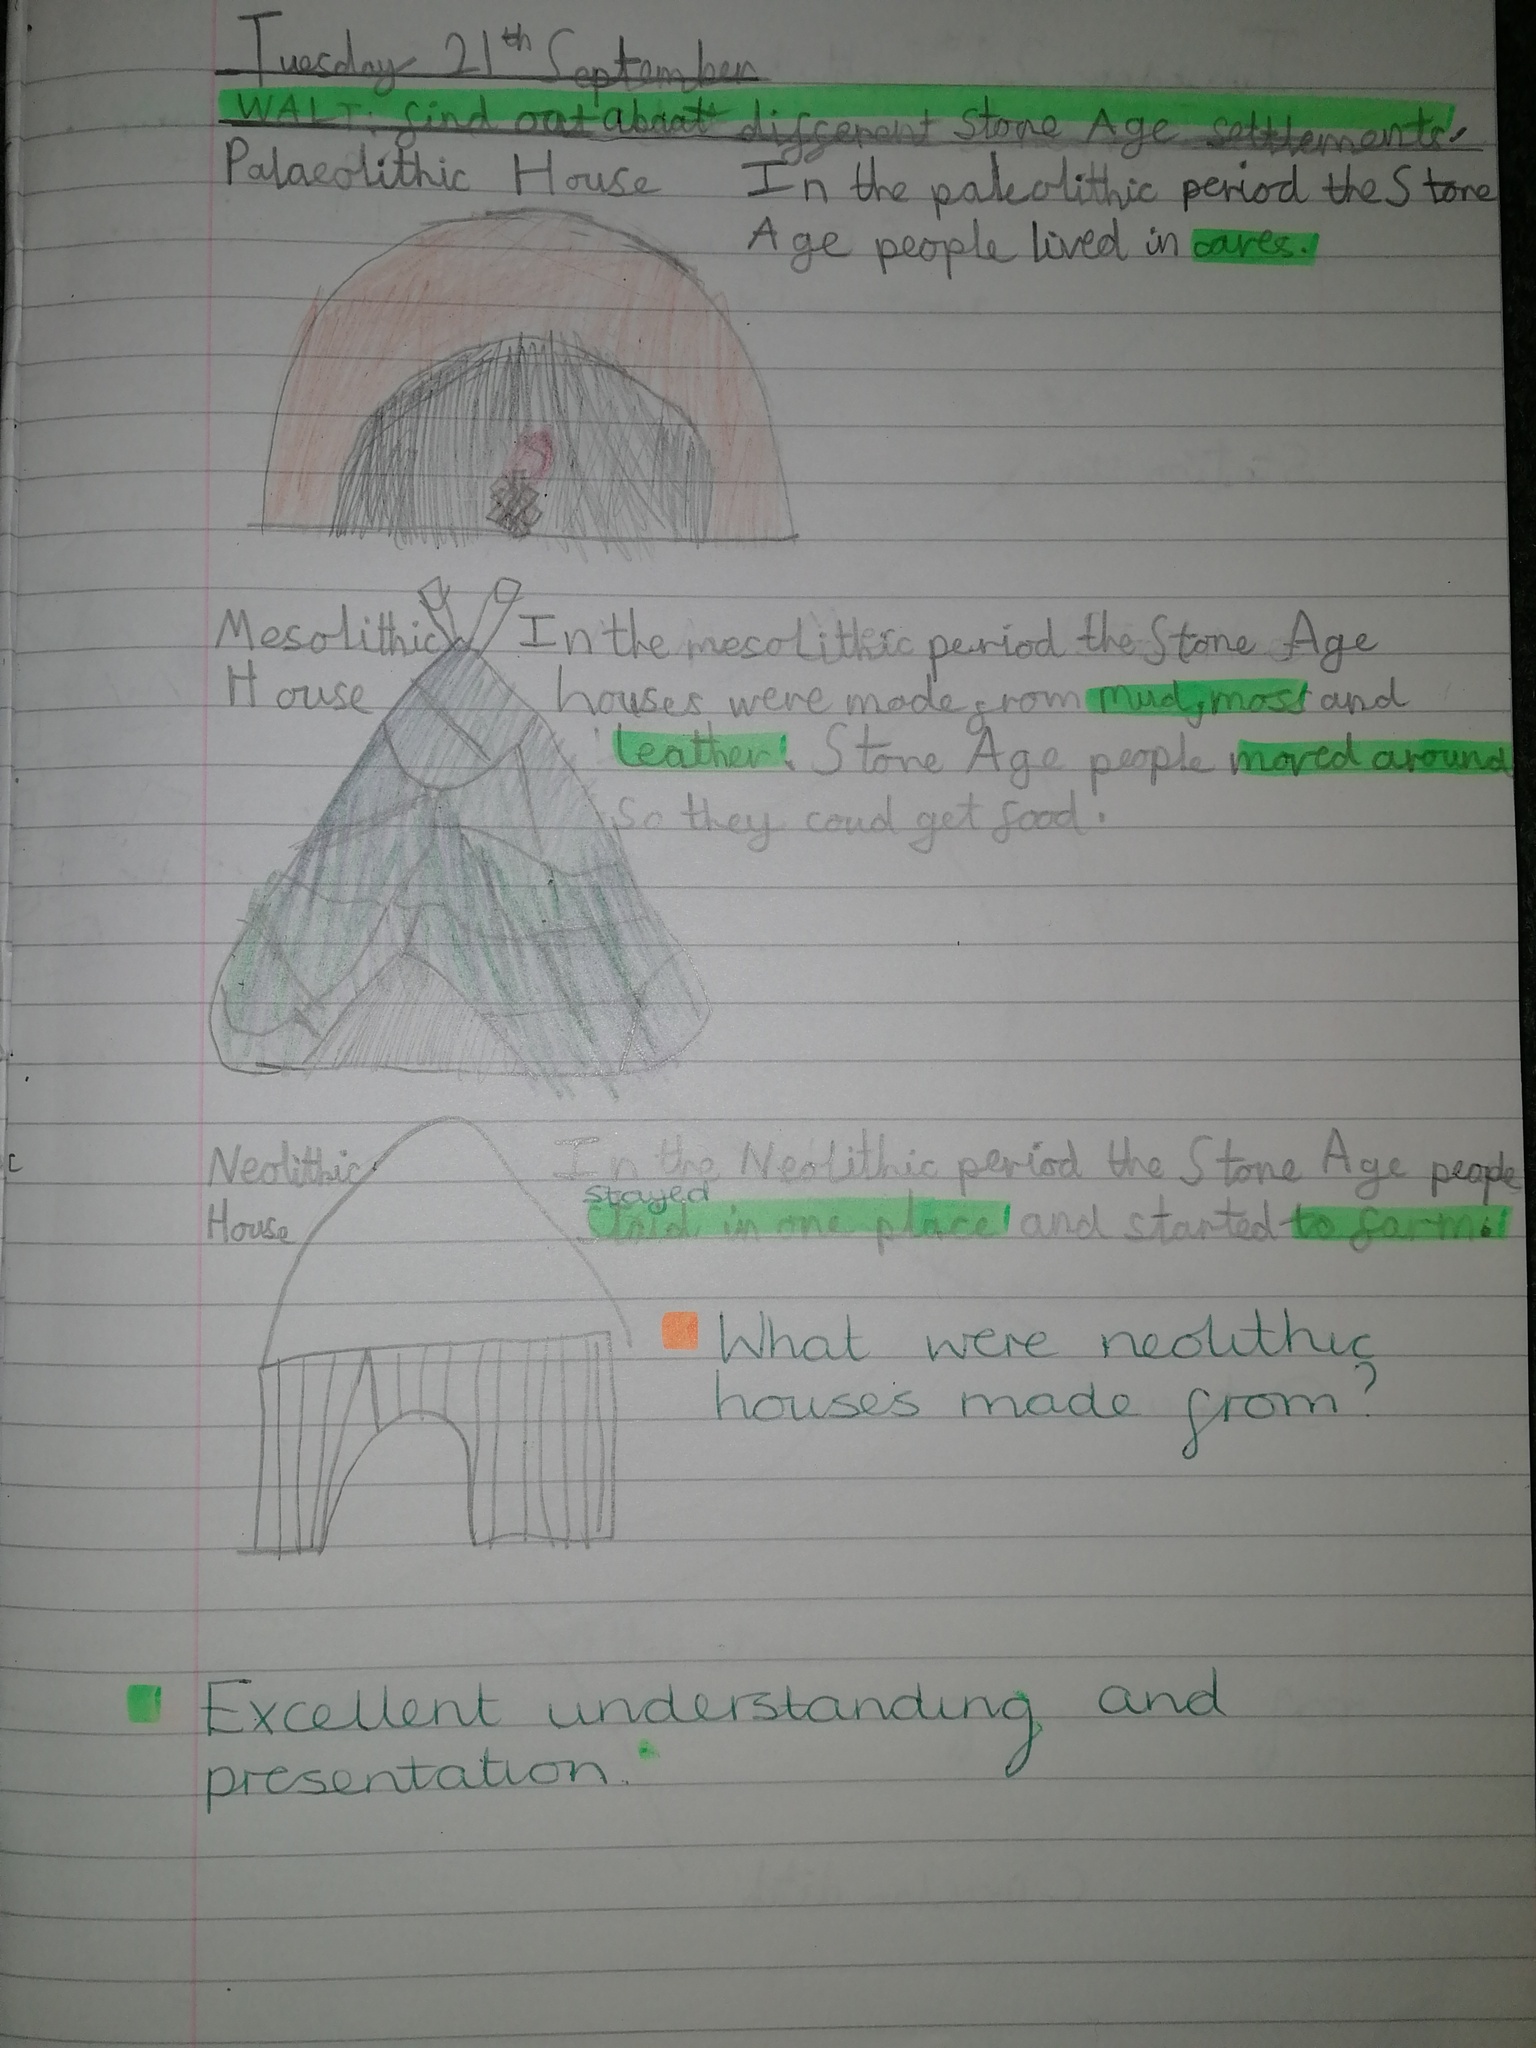 Tuesday 21th September
WALT: find out about different Stone Age settlements.
Palaeolithic House
In the paleolithic period the Stone
Age people lived in caves.
Mesolithic
House
In the mesolithic period the Stone Age
houses were made from mud, moss and
leather. Stone Age people moved around
so they coud get food.
Neolithic
House
In the Neolithic period the Stone Age people
stayed
in one place and started to farm.
What were neolithic
houses made from?
Excellent understanding and
presentation.